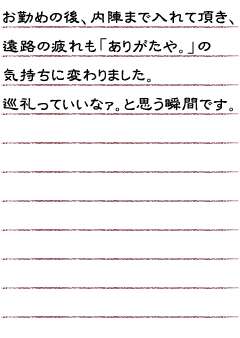 お勤めの後、内陣まで入れて頂き、
遠路の疲れも「ありがたや。」の
気持ちに変わりました。
巡礼っていいなァ。と思う瞬間です。